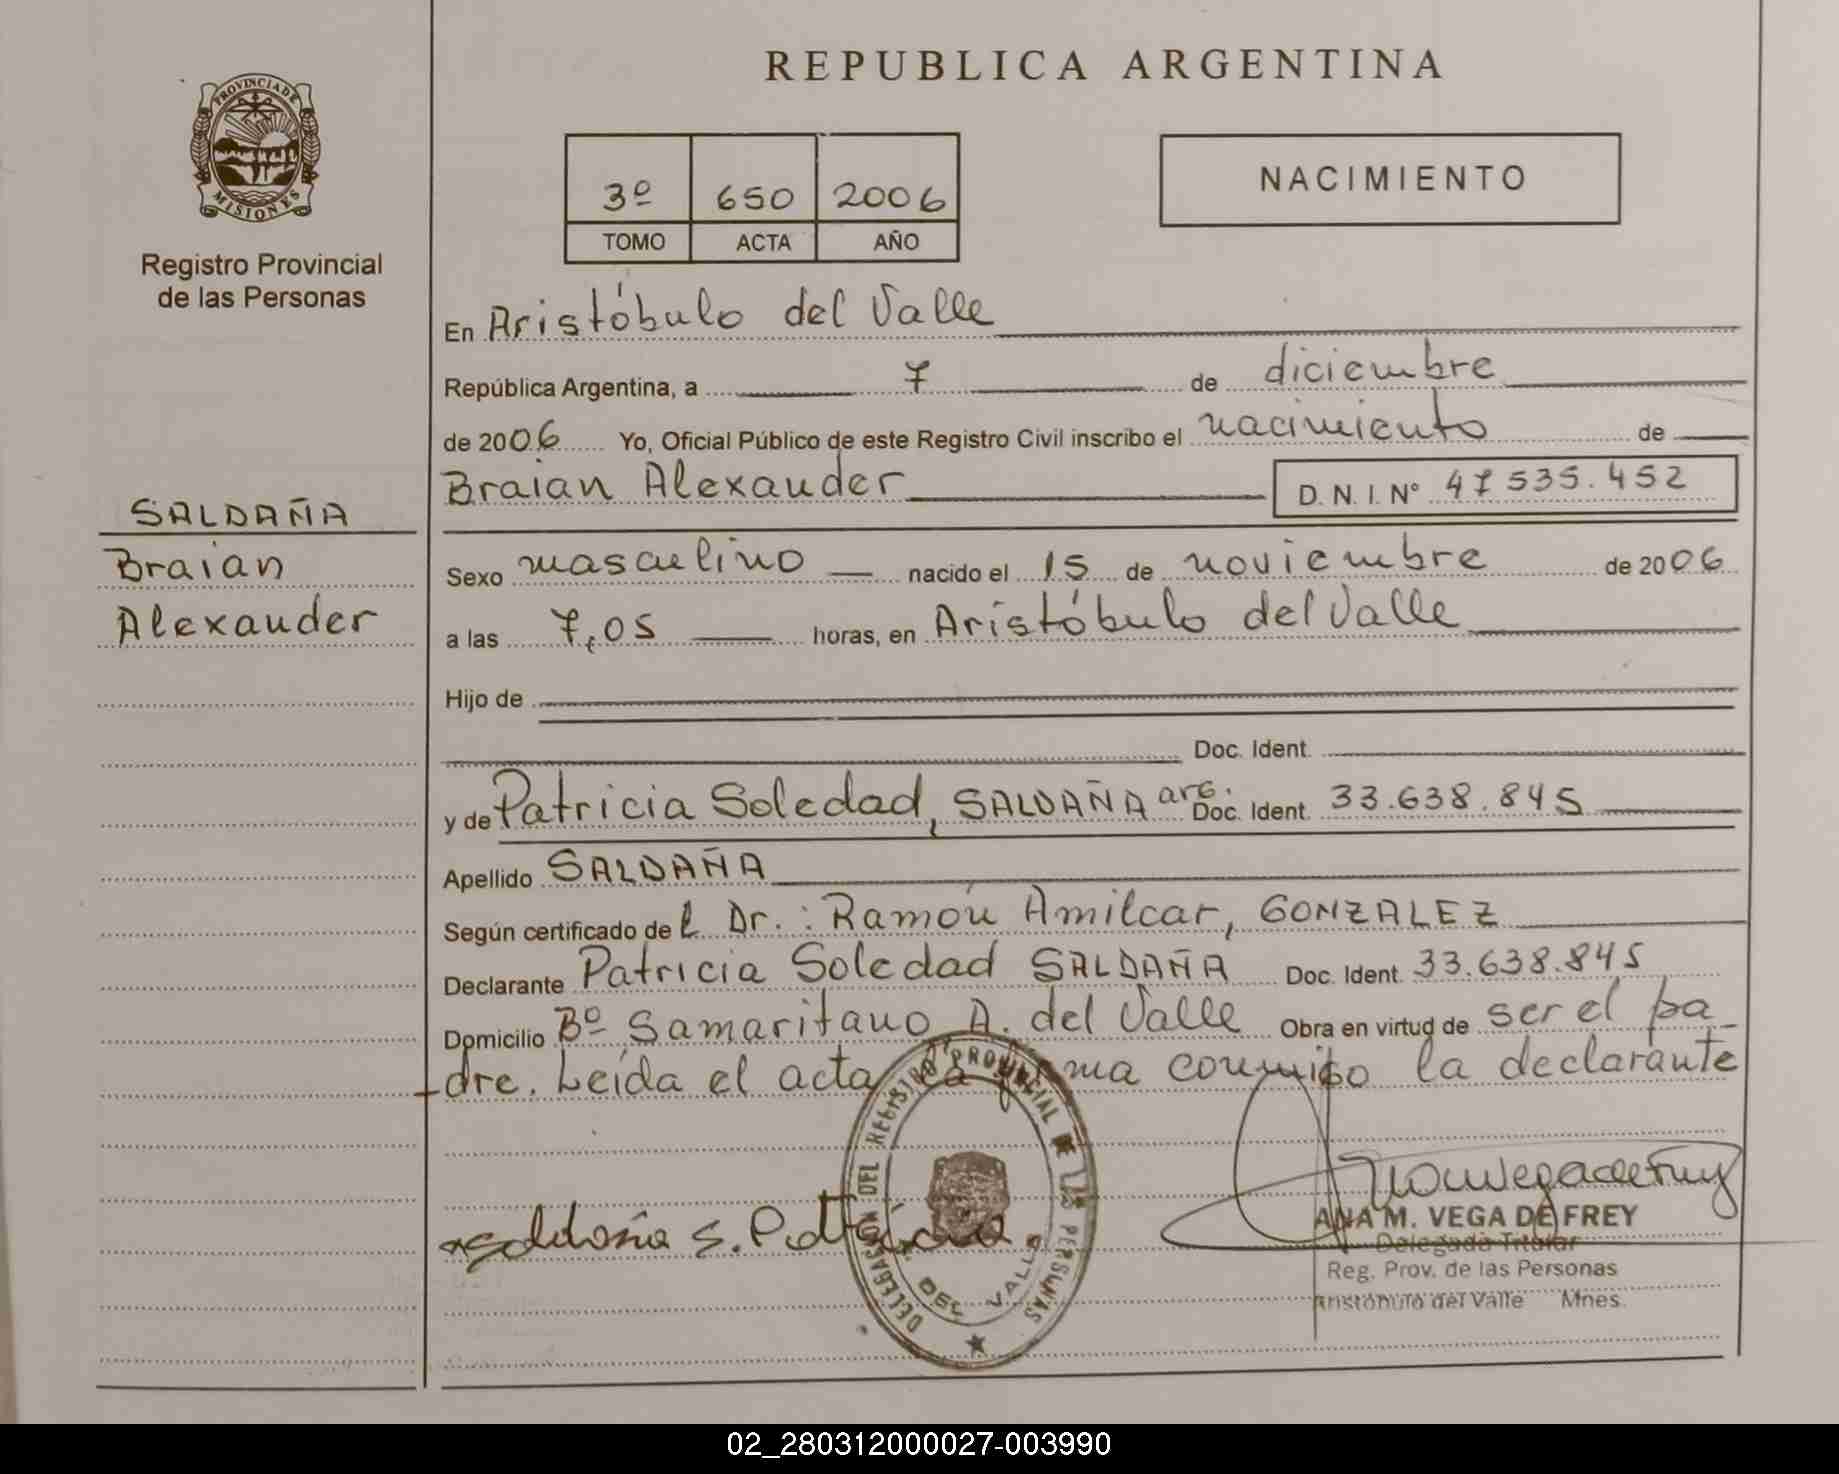 REPUBLICA ARGENTINA
PROVINCIA DE
MISIONES
Registro Provincial
de las Personas
3º 650 2006
TOMO ACTA AÑO
NACIMIENTO
En Aristóbulo del Valle
República Argentina, a 7 de diciembre
de 2006 Yo, Oficial Público de este Registro Civil inscribo el nacimiento de
Braian Alexander D.N.I.Nº 47535.452
SALDAÑA
Braian
Alexander
Sexo masculino nacido el 15 de noviembre de 2006
a las 7,05 horas, en Aristóbulo del Valle
Hijo de
Doc. Ident.
y de Patricia Soledad, SALDAÑA arg. Doc. Ident. 33.638.845
Apellido SALDAÑA
Según certificado del Dr.: Ramón Amilcar, GONZALEZ
Declarante Patricia Soledad SALDAÑA Doc. Ident. 33.638.845
Domicilio Bº Samaritano A. del Valle Obra en virtud de ser el pa_
dre. Leída el acta la firma conmigo la declarante
Saldaña S. Patricia
DELEGACION DEL REGISTRO PROVINCIAL DE LAS PERSONAS
DEL VALLE
ANA M. VEGA DE FREY
Delegada Titular
Reg. Prov. de las Personas
Aristóbulo del Valle Mnes.
02_280312000027-003990